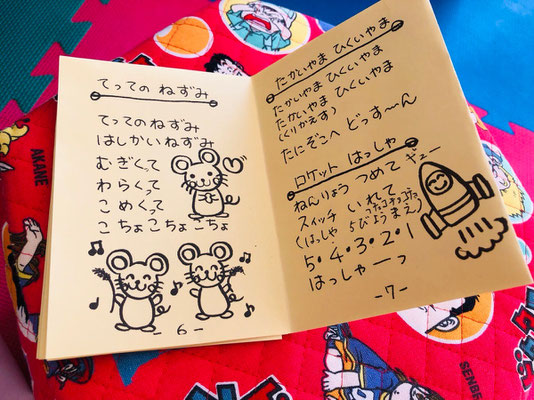 てっての ねずみ
てってのねずみ
はしかいねずみ
むぎくって
わらくって
こめくって
こちょこちょこちょ
-6-
たかいやま ひくいやま
たかいやま ひくいやま
たかいやま ひくいやま
(くりかえす)
たにぞこへ どっす〜ん
ロケット はっしゃ
ねんりょう つめて ギュー
スイッチ いれて
コチョコチョコチョ
(はっしゃ 5びょうまえ)
5・4・3・2・1
はっしゃーっ
-7-
AKANE
SENBE